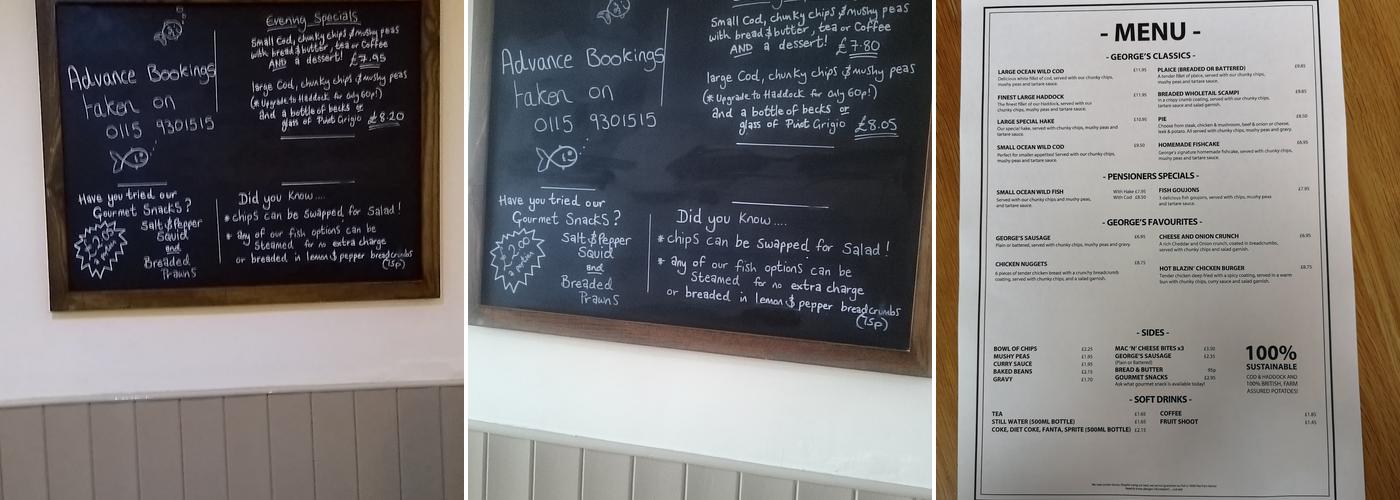 Evening Specials
Small Cod, chunky chips & mushy peas
with bread & butter, tea or Coffee
AND a dessert! £7.95
large Cod, chunky chips & mushy peas
(* Upgrade to Haddock for only 60p!)
and a bottle of becks or
glass of Pinot Grigio £8.20
Advance Bookings
taken on
0115 9301515
Have you tried our
Gourmet Snacks?
Salt & Pepper
Squid
and
Breaded
Prawns
£2.05
a portion
Did you Know....
* chips can be swapped for Salad!
* any of our fish options can be
Steamed for no extra charge
or breaded in lemon & pepper breadcrumbs
(15p)
Small Cod, chunky chips & mushy peas
with bread & butter, tea or Coffee
AND a dessert! £7.80
large Cod, chunky chips & mushy peas
(* Upgrade to Haddock for only 60p!)
and a bottle of becks or
glass of Pinot Grigio £8.05
Advance Bookings
taken on
0115 9301515
Have you tried our
Gourmet Snacks?
Salt & Pepper
Squid
and
Breaded
Prawns
£2.00
a portion
Did you Know....
* chips can be swapped for Salad!
* any of our fish options can be
Steamed for no extra charge
or breaded in lemon & pepper breadcrumbs
(15p)
- MENU -
- GEORGE'S CLASSICS -
LARGE OCEAN WILD COD £11.95
Delicious white fillet of cod, served with our chunky chips,
mushy peas and tartare sauce.
FINEST LARGE HADDOCK £11.95
The finest fillet of our Haddock, served with our
chunky chips, mushy peas and tartare sauce.
LARGE SPECIAL HAKE £10.95
Our special hake, served with chunky chips, mushy peas and
tartare sauce.
SMALL OCEAN WILD COD £9.50
Perfect for smaller appetites! Served with our chunky chips,
mushy peas and tartare sauce.
PLAICE (BREADED OR BATTERED) £9.85
A tender fillet of plaice, served with our chunky chips,
mushy peas and tartare sauce.
BREADED WHOLETAIL SCAMPI £9.85
In a crispy crumb coating, served with our chunky chips,
tartare sauce and salad garnish.
PIE £8.50
Choose from steak, chicken & mushroom, beef & onion or cheese,
leek & potato. All served with chunky chips, mushy peas and gravy.
HOMEMADE FISHCAKE £6.95
George's signature homemade fishcake, served with chunky chips,
mushy peas and tartare sauce.
- PENSIONERS SPECIALS -
SMALL OCEAN WILD FISH With Hake £7.95
Served with our chunky chips, mushy peas, With Cod £8.50
and tartare sauce.
FISH GOUJONS £7.95
3 delicious fish goujons, served with chips, mushy peas
and tartare sauce.
- GEORGE'S FAVOURITES -
GEORGE'S SAUSAGE £6.95
Plain or battered, served with chunky chips, mushy peas and gravy.
CHICKEN NUGGETS £8.75
6 pieces of tender chicken breast with a crunchy breadcrumb
coating, served with chunky chips, and a salad garnish.
CHEESE AND ONION CRUNCH £6.95
A rich Cheddar and Onion crunch, coated in breadcrumbs,
served with chunky chips and salad garnish.
HOT BLAZIN' CHICKEN BURGER £8.75
Tender chicken deep fried with a spicy coating, served in a warm
bun with chunky chips, curry sauce and salad garnish.
- SIDES -
BOWL OF CHIPS £2.25
MUSHY PEAS £1.95
CURRY SAUCE £1.95
BAKED BEANS £2.15
GRAVY £1.70
MAC 'N' CHEESE BITES x3 £3.50
GEORGE'S SAUSAGE £2.35
(Plain or Battered)
BREAD & BUTTER 95p
GOURMET SNACKS £2.95
Ask what gourmet snack is available today!
100%
SUSTAINABLE
COD & HADDOCK AND
100% BRITISH, FARM
ASSURED POTATOES!
- SOFT DRINKS -
TEA £1.65
STILL WATER (500ML BOTTLE) £1.65
COKE, DIET COKE, FANTA, SPRITE (500ML BOTTLE) £2.15
COFFEE £1.85
FRUIT SHOOT £1.45